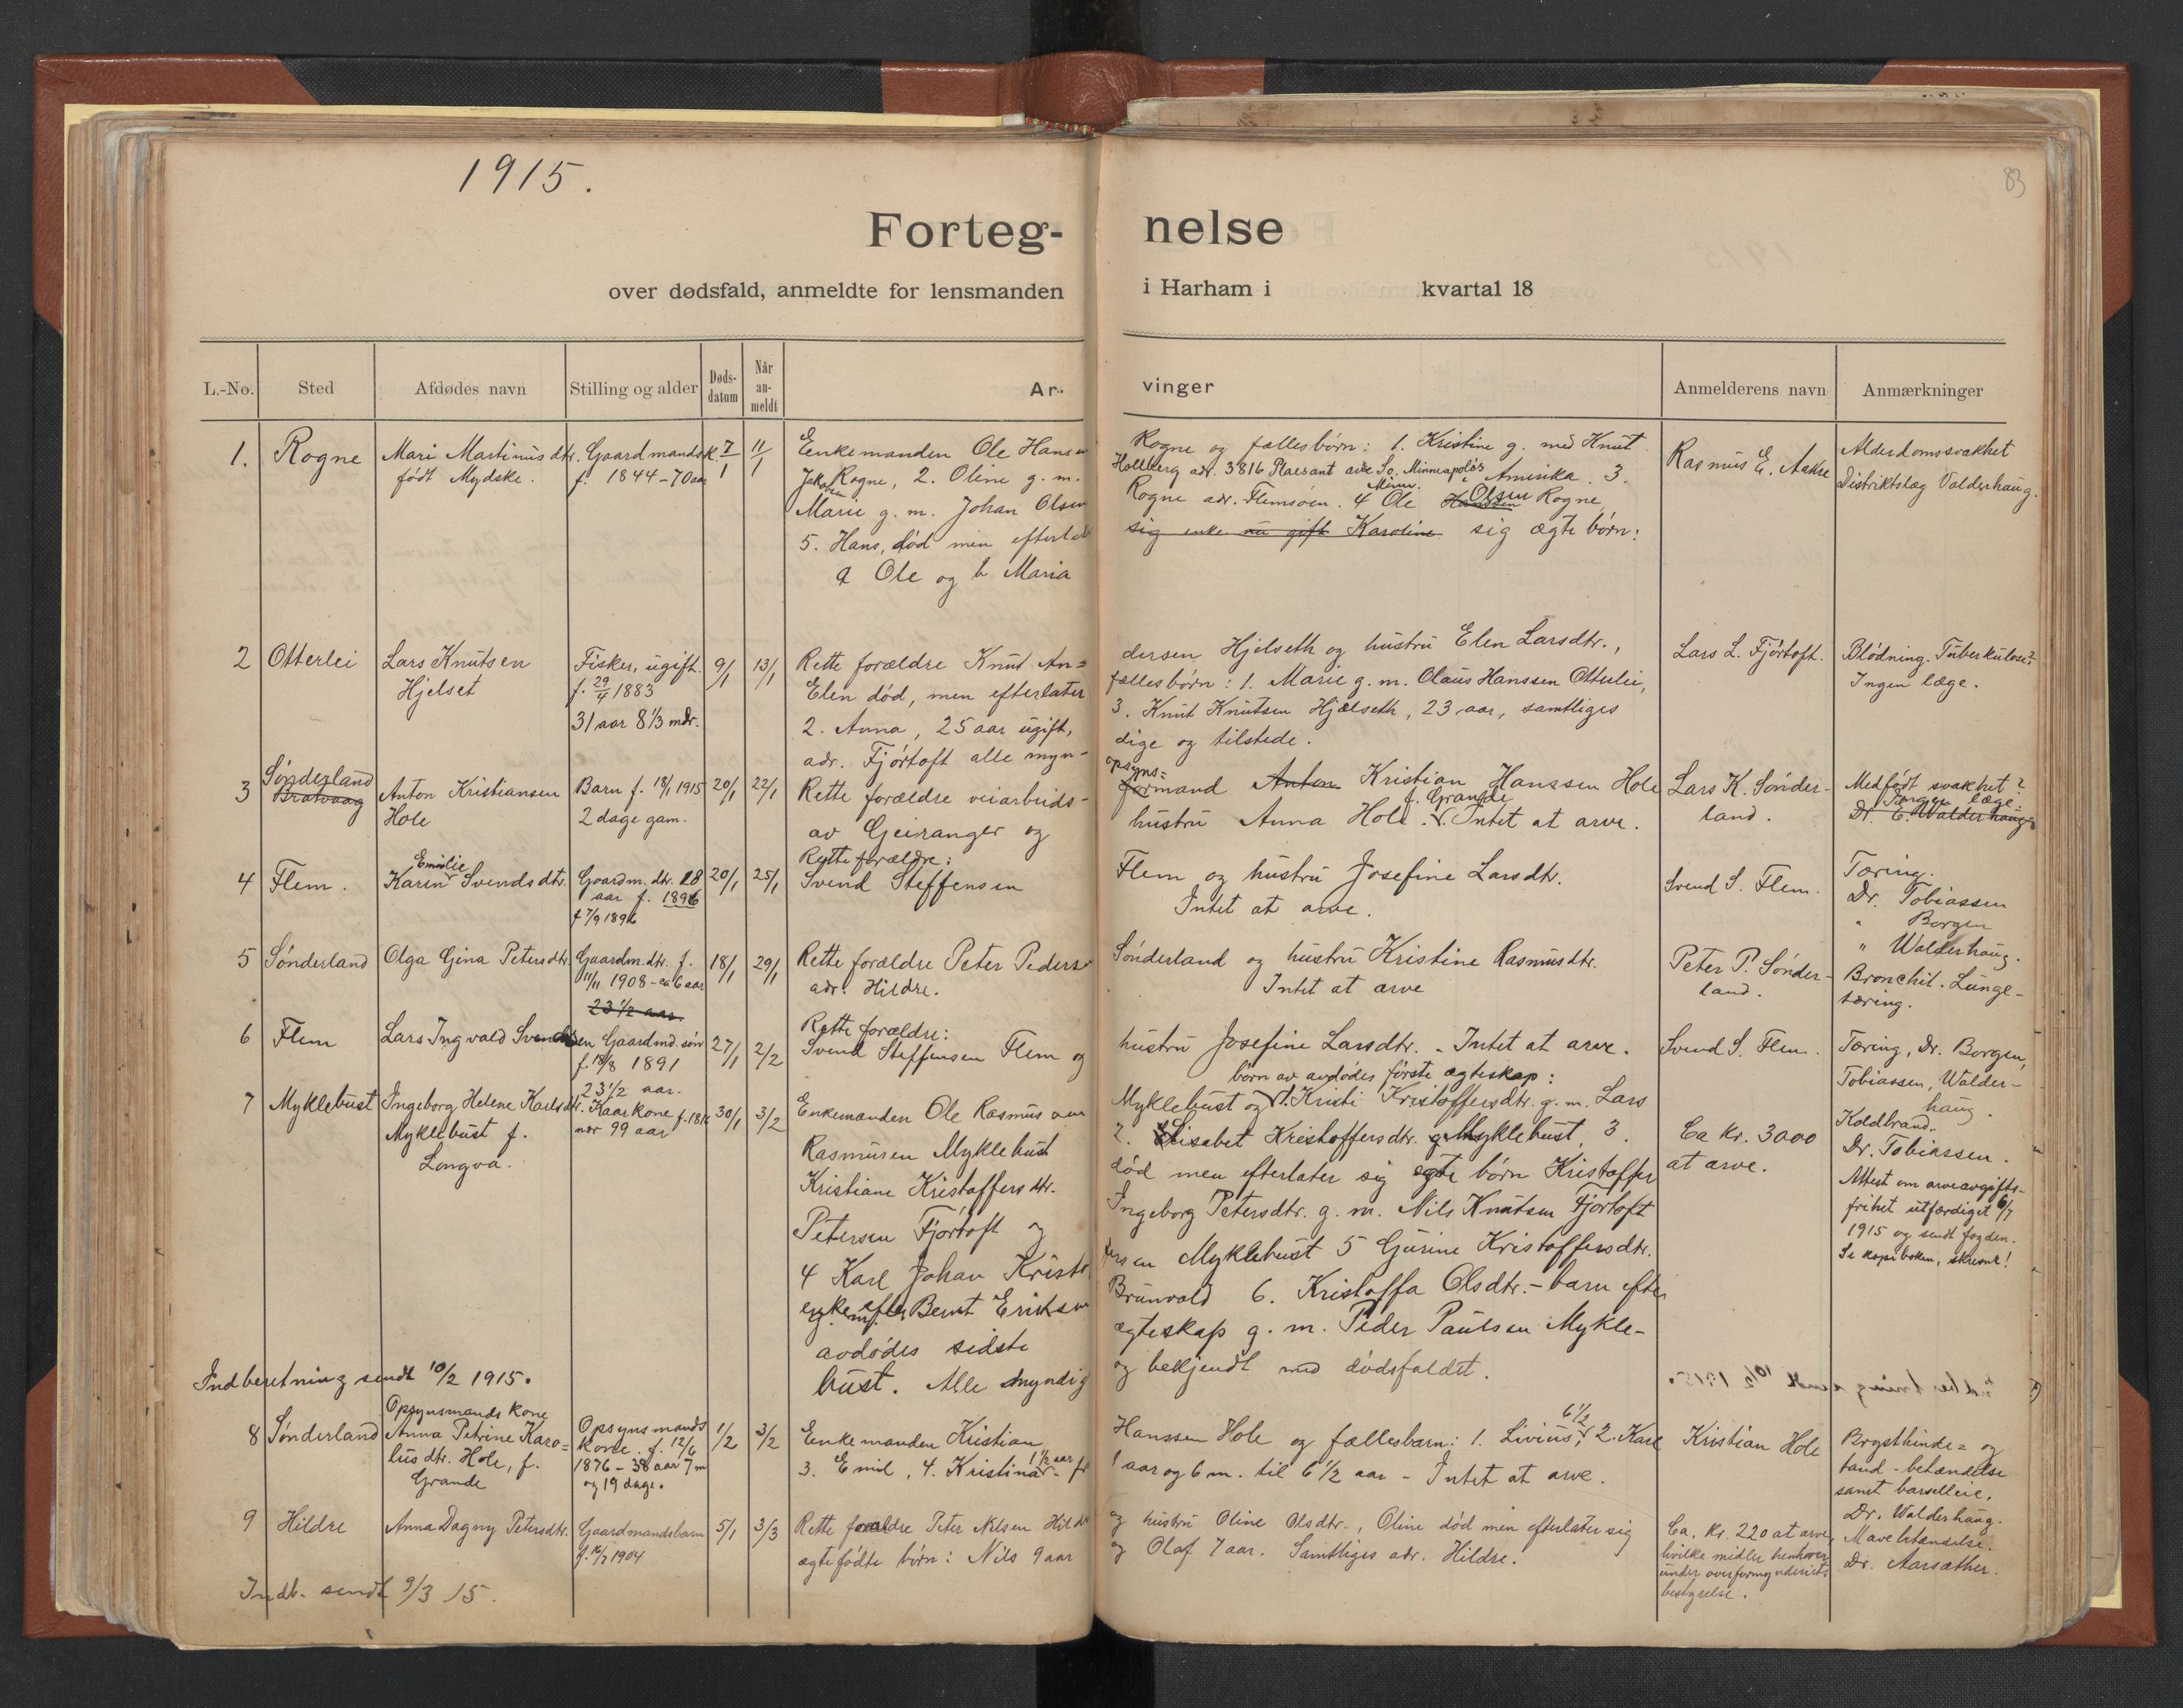 1915.
83
Forteg-nelse
over dødsfald, anmeldte for lensmanden i Harham i kvartal 18
L.-No. Sted Afdødes navn Stilling og alder Døds-datum Når an-meldt Ar-vinger Anmelderens navn Anmærkninger
1. Rogne Mari Martinusdtr. Gaardmandsk. 7/1 11/1 Enkemanden Ole Hansen Rogne og fællesbørn: 1. Kristine g. med Knut Rasmus E. Aakre Alderdomssvakhet
født Mydske. f. 1844-70 aar Jakobsen Rogne, 2. Oline g. m. Hollberg adr. 3816 Plaesant ave So. Minneapolis Minn. Amerika. 3. Distriktslæg Valderhaug.
Marie g. m. Johan Olsen Rogne adr. Flemsøen. 4 Ole Hanssen Olsen Rogne
5. Hans, død men efterlatt sig enke nu gift Karoline sig ægte børn:
a Ole og b Maria
2 Otterlei Lars Knutsen Fisker, ugift. 9/1 13/1 Rette forældre Knut An=dersen Hjelseth og hustru Elen Larsdtr., Lars L. Fjørtoft. Blødning. Tuberkulose?
Hjelset f. 29/4 1883 Elen død, men efterlater fællesbørn: 1. Marie g. m. Olaus Hanssen Otterlei, Ingen læge.
31 aar 8 1/3 mdr. 2. Anna, 25 aar ugift, 3. Knut Knutsen Hjælseth, 23 aar, samtliges
adr. Fjørtoft alle myn-dige og tilstede.
3 Sønderland Bratvaag Anton Kristiansen Barn f. 18/1 1915 20/1 22/1 Rette forældre veiarbeids-opsyns=formand Anton Kristian Hanssen Hole Lars K. Sønder- Medfødt svakhet?
Hole 2 dage gam. av Geiranger og hustru Anna Hole f. Grande. Intet at arve. land. Ingen læge= Dr. E. Walderhaug
4 Flem. Karen Emilie Svendsdtr. Gaardm. dtr. 18 20/1 25/1 Rette forældre: Svend Steffensen Flem og hustru Josefine Larsdtr. Svend S. Flem. Tæring.
aar f. 1896 Intet at arve. Dr. Tobiassen
f 7/9 1896 " Borgen
5 Sønderland Olga Gina Petersdtr. Gaardm. dtr. f. 18/1 29/1 Rette forældre Peter Pedersen Sønderland og hustru Kristine Rasmusdtr. Peter P. Sønder- " Walderhaug.
11/11 1908 - ca 6 aar adr. Hildre. Intet at arve land. Bronchit. Lunge-
23 1/2 aar. tæring.
6 Flem Lars Ingvald Svendsen Gaardmd. søn 27/1 2/2 Rette forældre: Svend Steffensen Flem og hustru Josefine Larsdtr. - Intet at arve. Svend S. Flem. Tæring, Dr. Borgen,
f. 18/8 1891 Tobiassen, Walder-
23 1/2 aar. børn av avdødes første ægteskap: haug.
7 Myklebust Ingeborg Helene Karlsdtr. Kaarkone f. 1816 30/1 3/2 Enkemanden Ole Rasmussen Myklebust og 1. Kristi Kristoffersdtr. g. m. Lars Koldbrand.
Myklebust f. nær 99 aar Rasmusen Myklebust 2. Elisabet Kristoffersdtr. Myklebust, 3. Ca Kr. 3000 Dr. Tobiassen.
Longva. Kristiane Kristoffersdtr. død men efterlater sig ægte børn Kristoffer at arve. Attest om arveavgifts-
Petersen Fjørtoft og Ingeborg Petersdtr. g. m. Nils Knutsen Fjørtoft frihet utfærdiget 6/7
4 Karl Johan Kristoffersen Myklebust 5 Gurine Kristoffersdtr. 1915 og sendt fogden.
enke efter Bernt Eriksen Brunvold 6. Kristoffa Olsdtr. - barn efter Se kopiboken, skrevne!
avdødes sidste ægteskap g. m. Peder Paulsen Mykle-
bust. Alle myndig og bekjendt med dødsfaldet.
Indberetning sendt 10/2 1915.
8 Sønderland Opsynsmands kone Anna Petrine Karo= Opsynsmands 1/2 3/2 Enkemanden Kristian Hanssen Hole og fællesbarn: 1. Livius, 6 1/2 2. Karl Kristian Hole Brysthinde= og
lusdtr. Hole, f. kone. f. 12/6 3. Emil, 4. Kristina 1 1/2 aar - fr 1 aar og 6 m. til 6 1/2 aar - Intet at arve. tand-betændelse
Grande 1876 - 38 aar 7 m samt barselleie.
og 19 dage. Dr. Walderhaug.
9 Hildre Anna Dagny Petersdtr. Gaardmandsbarn 5/1 3/3 Rette forældre Peter Nilsen Hildre og hustru Oline Olsdtr., Oline død men efterlater sig Ca. Kr. 220 at arve, Mavebetændelse.
f. 16/7 1904 ægtefødte børn: Nils 9 aar og Olaf 7 aar. Samtliges adr. Hildre. hvilke midler henhører Dr. Aarsæther.
under overformynderiets
bestyrelse.
Indb. sendt 9/3 15.